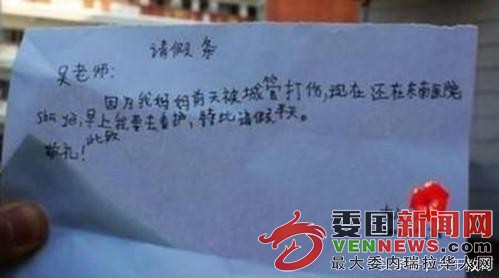 请假条
吴老师:
因为我妈妈前天被城管打伤,现在还在东南医院
shu ye,早上我要去看护,特此请假半天。
此致
敬礼!
委国新闻网
VENNEWS.COM
最大委内瑞拉华人网